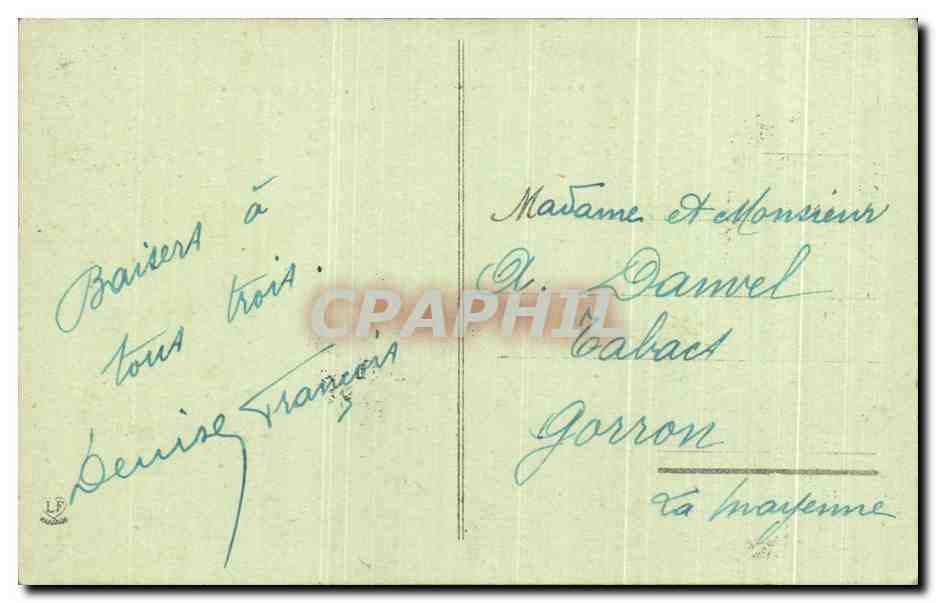 Baisers à
tous trois.
Denise François
Madame et Monsieur
A. Danvel
Tabacs
Gorron
La Mayenne
CPAPHIL
LF